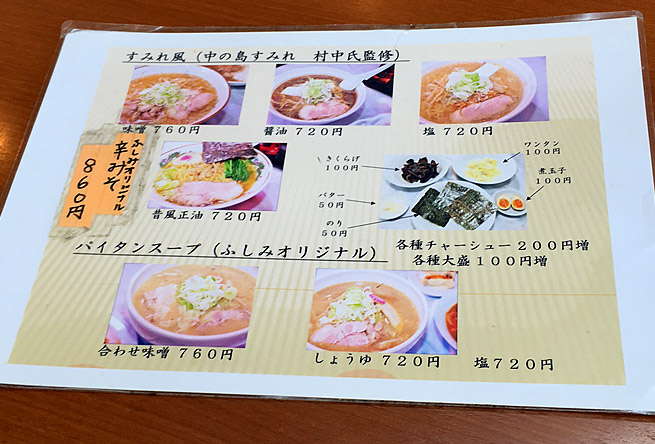 すみれ風（中の島すみれ　村中氏監修）
味噌 ７６０円
醤油 ７２０円
塩 ７２０円
ふしみオリジナル
辛みそ
８６０円
昔風正油 ７２０円
きくらげ
１００円
ワンタン
１００円
バター
５０円
煮玉子
１００円
のり
５０円
各種チャーシュー ２００円増
各種大盛 １００円増
パイタンスープ（ふしみオリジナル）
合わせ味噌 ７６０円
しょうゆ ７２０円
塩７２０円